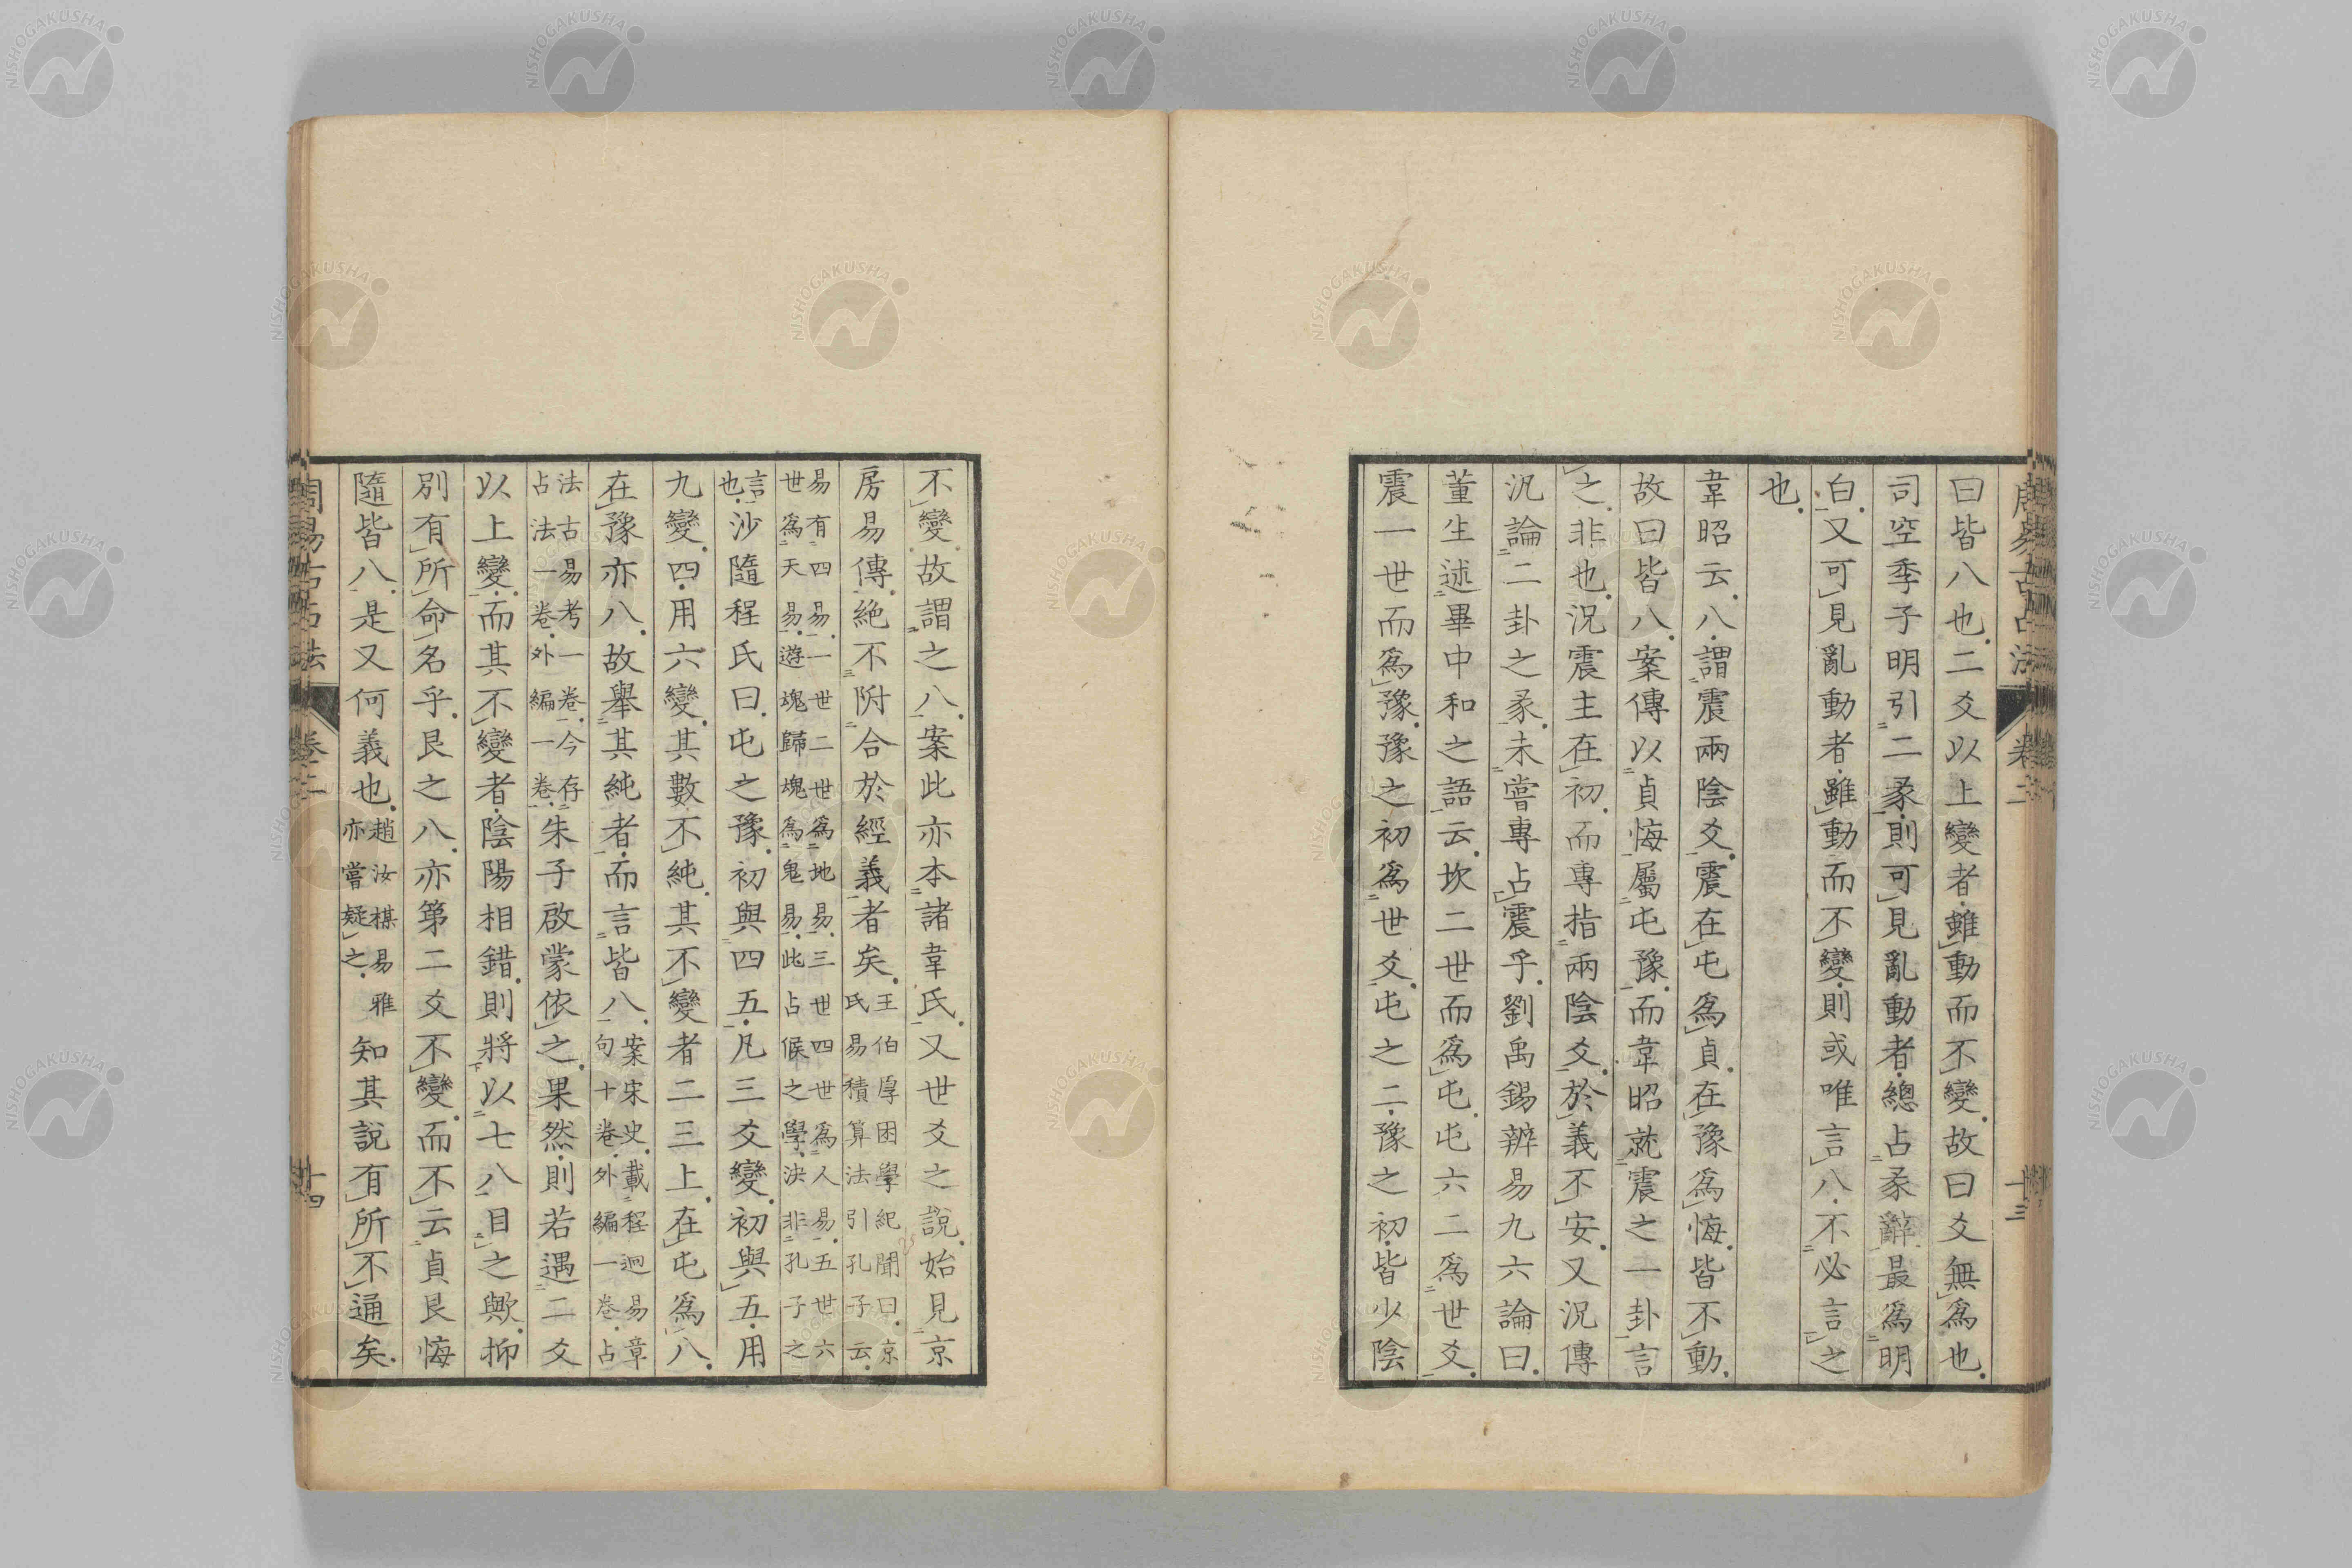 周易古占法 卷二 十三
曰皆八也二爻以上變者雖動而不變故曰爻無爲也
司空季子明引二彖則可見亂動者總占彖辭最爲明
白又可見亂動者雖動而不變則或唯言八不必言之
也
韋昭云八謂震兩陰爻震在屯爲貞在豫爲悔皆不動
故曰皆八案傳以貞悔屬屯豫而韋昭就震之一卦言
之非也況震主在初而專指兩陰爻於義不安又況傳
汎論二卦之彖未嘗專占震乎劉禹錫辨易九六論曰
董生述畢中和之語云坎二世而爲屯屯六二爲世爻
震一世而爲豫豫之初爲世爻屯之二豫之初皆少陰
不變故謂之八案此亦本諸韋氏又世爻之說始見京
房易傳絕不附合於經義者矣王伯厚困學紀聞曰京氏易積算法引孔子云
易有四易一世二世爲地易三世四世爲人易五世六世爲天易遊魂歸魂爲鬼易此占候之學決非孔子之
言也沙隨程氏曰屯之豫初與四五凡三爻變初與五用
九變四用六變其數不純其不變者二三上在屯爲八
在豫亦八故舉其純者而言皆八案宋史載程迥易章句十卷外編一卷占
法古易考一卷今存占法一卷外編一卷朱子啟蒙依之果然則若遇二爻
以上變而其不變者陰陽相錯則將以七八目之歟抑
別有所命名乎艮之八亦第二爻不變而不云貞艮悔
隨皆八是又何義也趙汝楳易雅亦嘗疑之知其說有所不通矣
周易古占法 卷二 十四
NISHOGAKUSHA